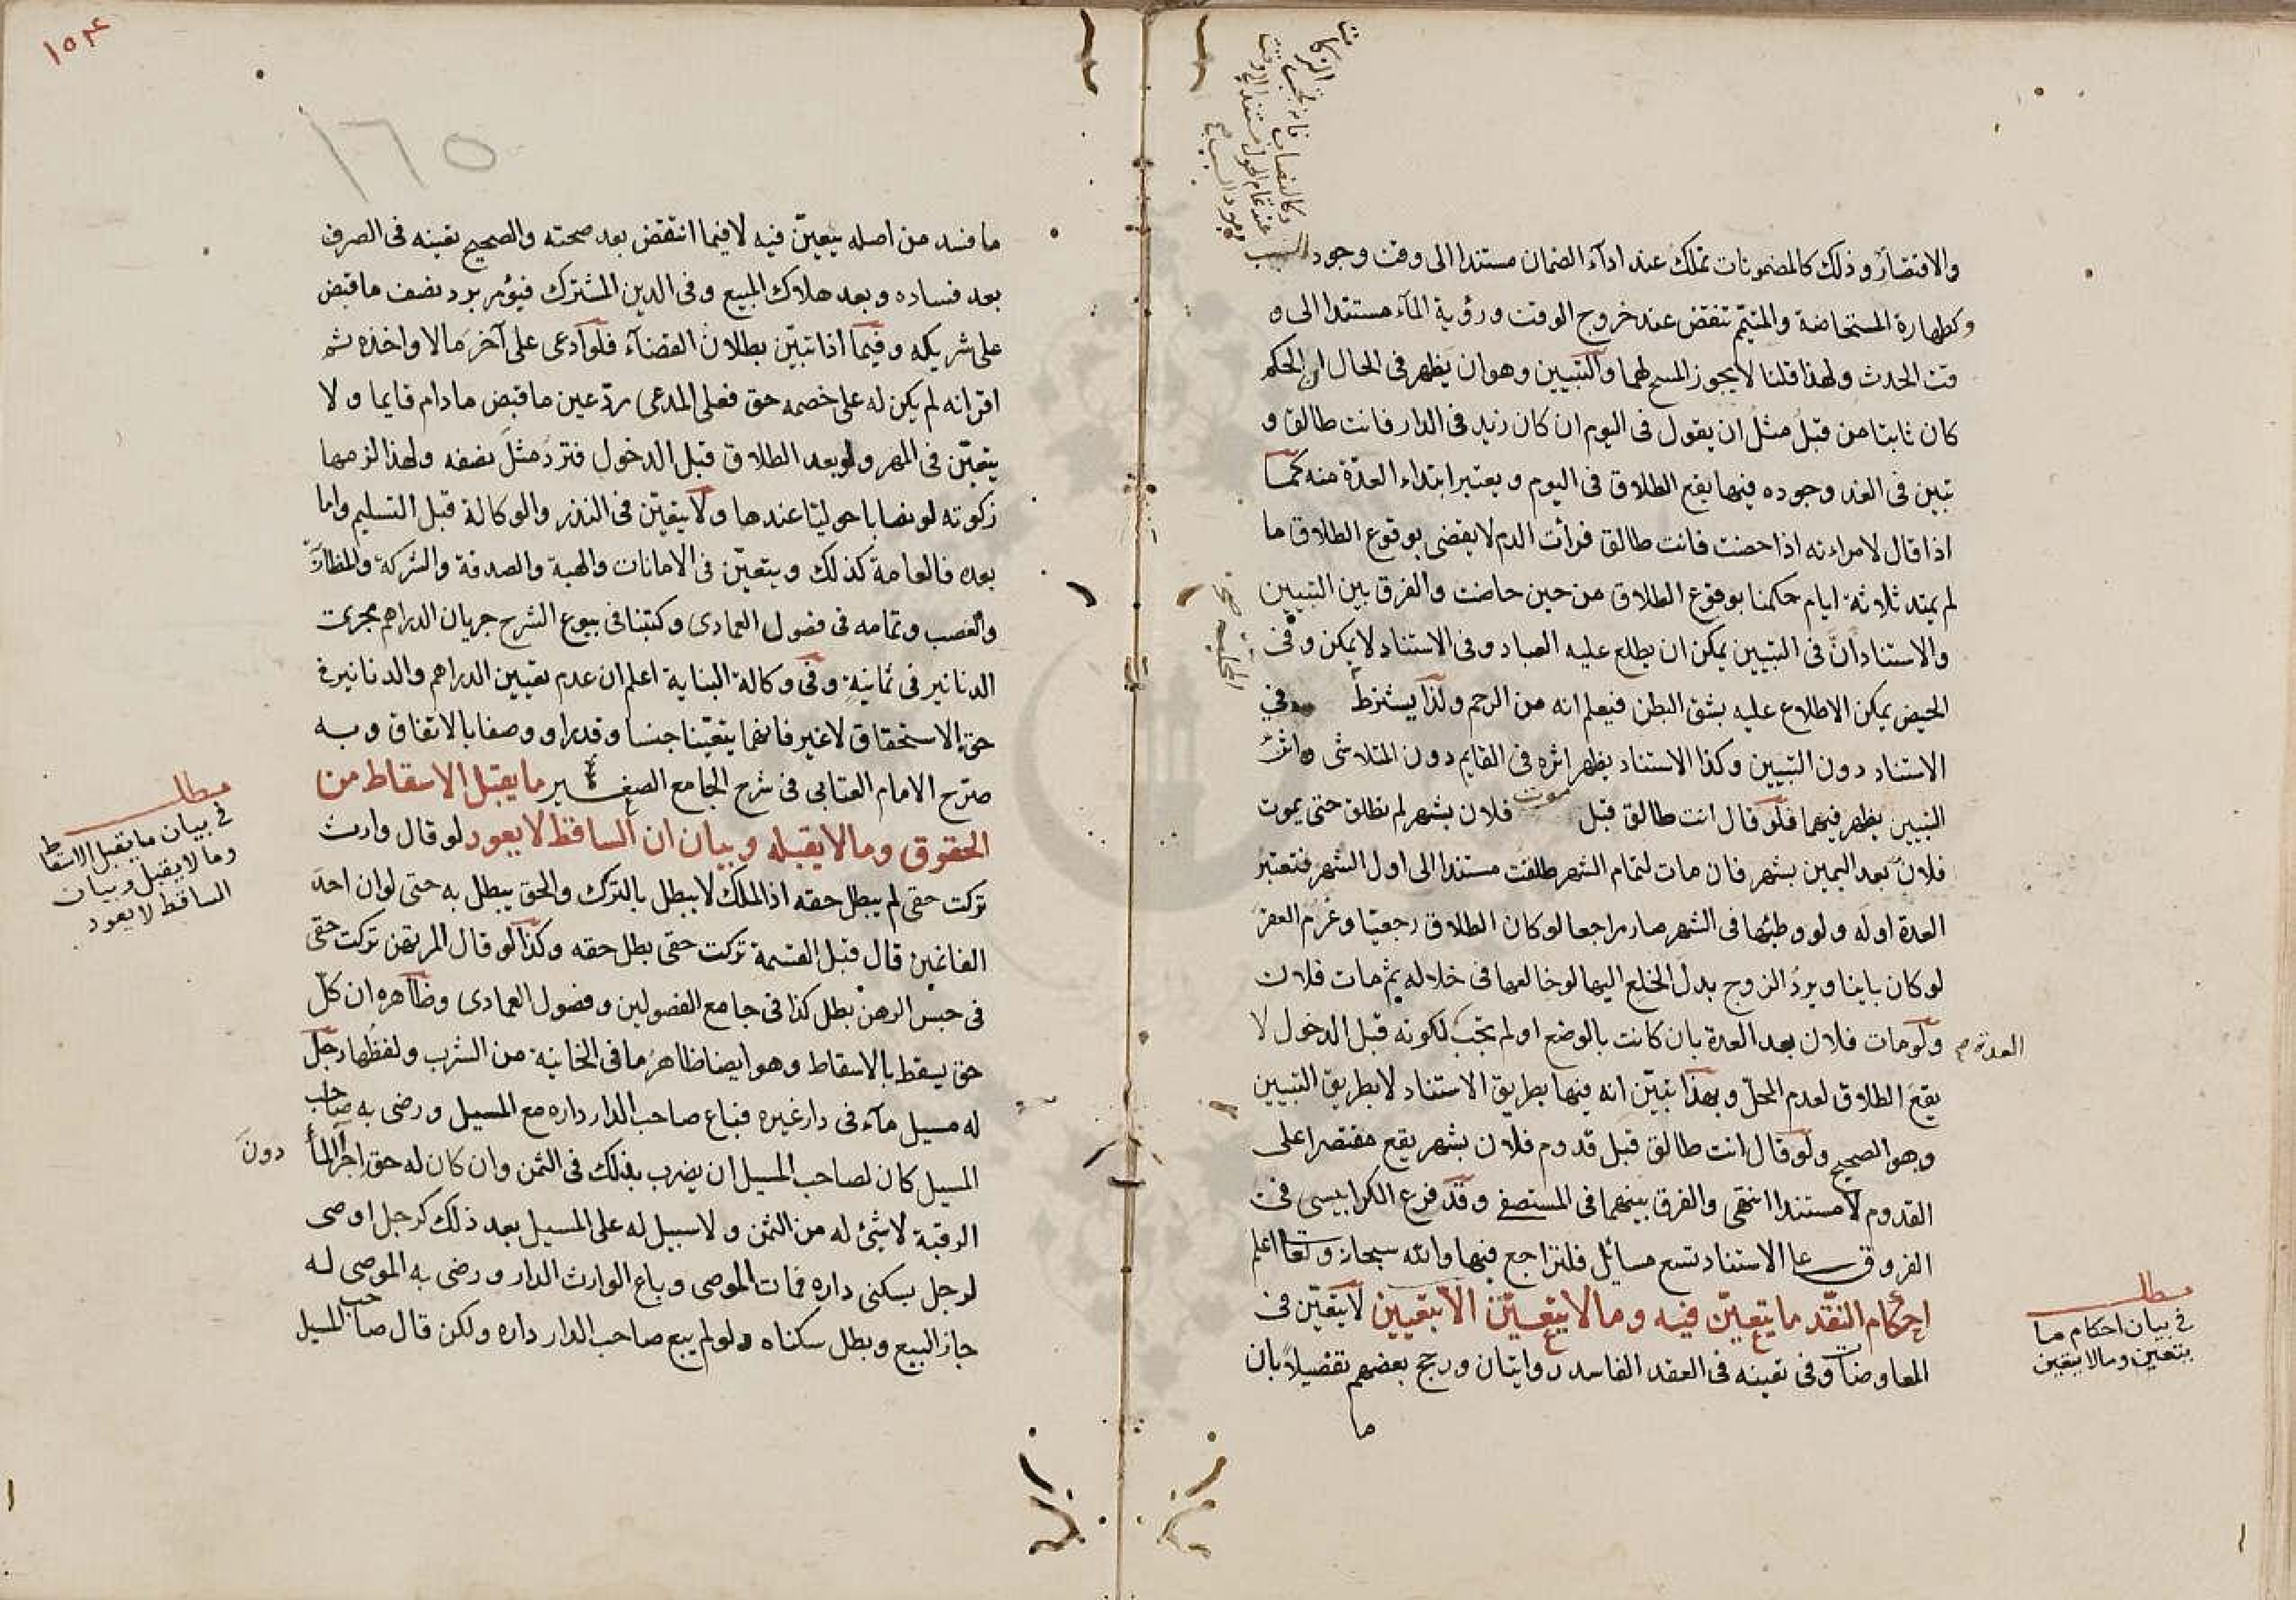 والاقتصار وذلك كالمضمونات تملك عند اداء الضمان مستندا الى وقت وجود السبب
وكالنصاب فانه تجب الزكاة
عند تمام الحول مستندا الى وقت
وجود النصاب صح
وكطهارة المستحاضة والمتيمم تنتقض عند خروج الوقت ورؤية الماء مستندا الى و
قت الحدث ولهذا قلنا لا يجوز المسح لهما والتبيين وهو ان يظهر فى الحال ان الحكم
كان ثابتا من قبل مثل ان يقول فى اليوم ان كان زيد فى الدار فانت طالق و
تبين فى الغد وجوده فيها يقع الطلاق فى اليوم ويعتبر ابتداء العدة منه كما
اذا قال لامراءته اذا حضت فانت طالق فرأت الدم لا يقضى بوقوع الطلاق ما
لم يمتد ثلاثة ايام حكمنا بوقوع الطلاق من حين حاضت والفرق بين التبيين
والاستناد ان فى التبيين يمكن ان يطلع عليه العباد وفى الاستناد لا يمكن وفى
الحيض يمكن الاطلاع عليه بشق البطن فيعلم انه من الرحم ولذا يشترط فى
المحلية صح
الاستناد دون التبيين وكذا الاستناد يظهر اثره فى القايم دون المتلاشى واثر
التبيين يظهر فيهما فلو قال انت طالق قبل موت فلان بشهر لم تطلق حتى يموت
فلان بعد اليمين بشهر فان مات لتمام الشهر طلقت مستندا الى اول الشهر فتعتبر
العدة اوله ولو وطئها فى الشهر صار مراجعا لو كان الطلاق رجعيا وغرم العقر
لو كان باينا ويرد الزوج بدل الخلع اليها لو خالعها فى خلاله ثم مات فلان
ولو مات فلان بعد العدة بان كانت بالوضع او لم تجب لكونه قبل الدخول لا
العدة صح
يقع الطلاق لعدم المحل وبهذا تبين انه فيها بطريق الاستناد لا بطريق التبيين
وهو الصحيح ولو قال انت طالق قبل قدوم فلان بشهر يقع مقتصرا على
القدوم لا مستندا انتهى والفرق بينهما فى المستصفى وقد فرع الكرابيسى فى
الفروق على الاستناد تسع مسائل فلتراجع فيها والله سبحانه وتعالى اعلم
احكام النقد ما يتعين فيه وما لا يتعين لا يتعين فى
مطلب
فى بيان احكام ما
يتعين وما لا يتعين
المعاوضات وفى تعينه فى العقد الفاسد روايتان ورجح بعضهم تفصيلا بان
ما
١٥٤
١٦٥
ما فسد من اصله يتعين فيه لا فيما انتقض بعد صحته والصحيح تعينه فى الصرف
بعد فساده وبعد هلاك المبيع وفى الدين المشترك فيؤمر برد نصف ما قبض
على شريكه وفيما اذا تبين بطلان القضاء فلو ادعى على آخر مالا واخذه ثم
اقر انه لم يكن له على خصمه حق فعلى المدعى رد عين ما قبض ما دام قايما ولا
يتعين فى المهر ولو بعد الطلاق قبل الدخول فترد مثل نصفه ولهذا لزمها
زكوته لو نصابا حوليا عندها ولا يتعين فى النذر والوكالة قبل التسليم واما
بعده فالعامة كذلك ويتعين فى الامانات والهبة والصدقة والشركة والمضاربة
والغصب وتمامه فى فصول العمادى وكتبنا فى بيوع الشرح جريان الدراهم مجرى
الدنانير فى ثمانية وفى وكالة البناية اعلم ان عدم تعيين الدراهم والدنانير فى
حق الاستحقاق لا غير فانهما يتعينا جنسا وقدرا ووصفا بالاتفاق وبه
صرح الامام العتابى فى شرح الجامع الصغير ما يقبل الاسقاط من
الحقوق وما لا يقبله وبيان ان الساقط لا يعود لو قال وارث
مطلب
فى بيان ما يقبل الاسقاط
وما لا يقبل وبيان
الساقط لا يعود
تركت حقى لم يبطل حقه اذ الملك لا يبطل بالترك والحق يبطل به حتى لو ان احد
الغانمين قال قبل القسمة تركت حقى بطل حقه وكذا لو قال المرتهن تركت حقى
فى حبس الرهن بطل كذا فى جامع الفصولين وفصول العمادى وظاهره ان كل
حق يسقط بالاسقاط وهو ايضا ظاهر ما فى الخانية من الشرب ولفظها رجل
له مسيل ماء فى دار غيره فباع صاحب الدار داره مع المسيل ورضى به صاحب
المسيل كان لصاحب المسيل ان يضرب بذلك فى الثمن وان كان له حق اجراء الماء
دون
الرقبة لا شئ له من الثمن ولا سبيل له على المسيل بعد ذلك كرجل اوصى
لرجل بسكنى داره فمات الموصى وباع الوارث الدار ورضى به الموصى له
جاز البيع وبطل سكناه ولو لم يبع صاحب الدار داره ولكن قال صاحب المسيل